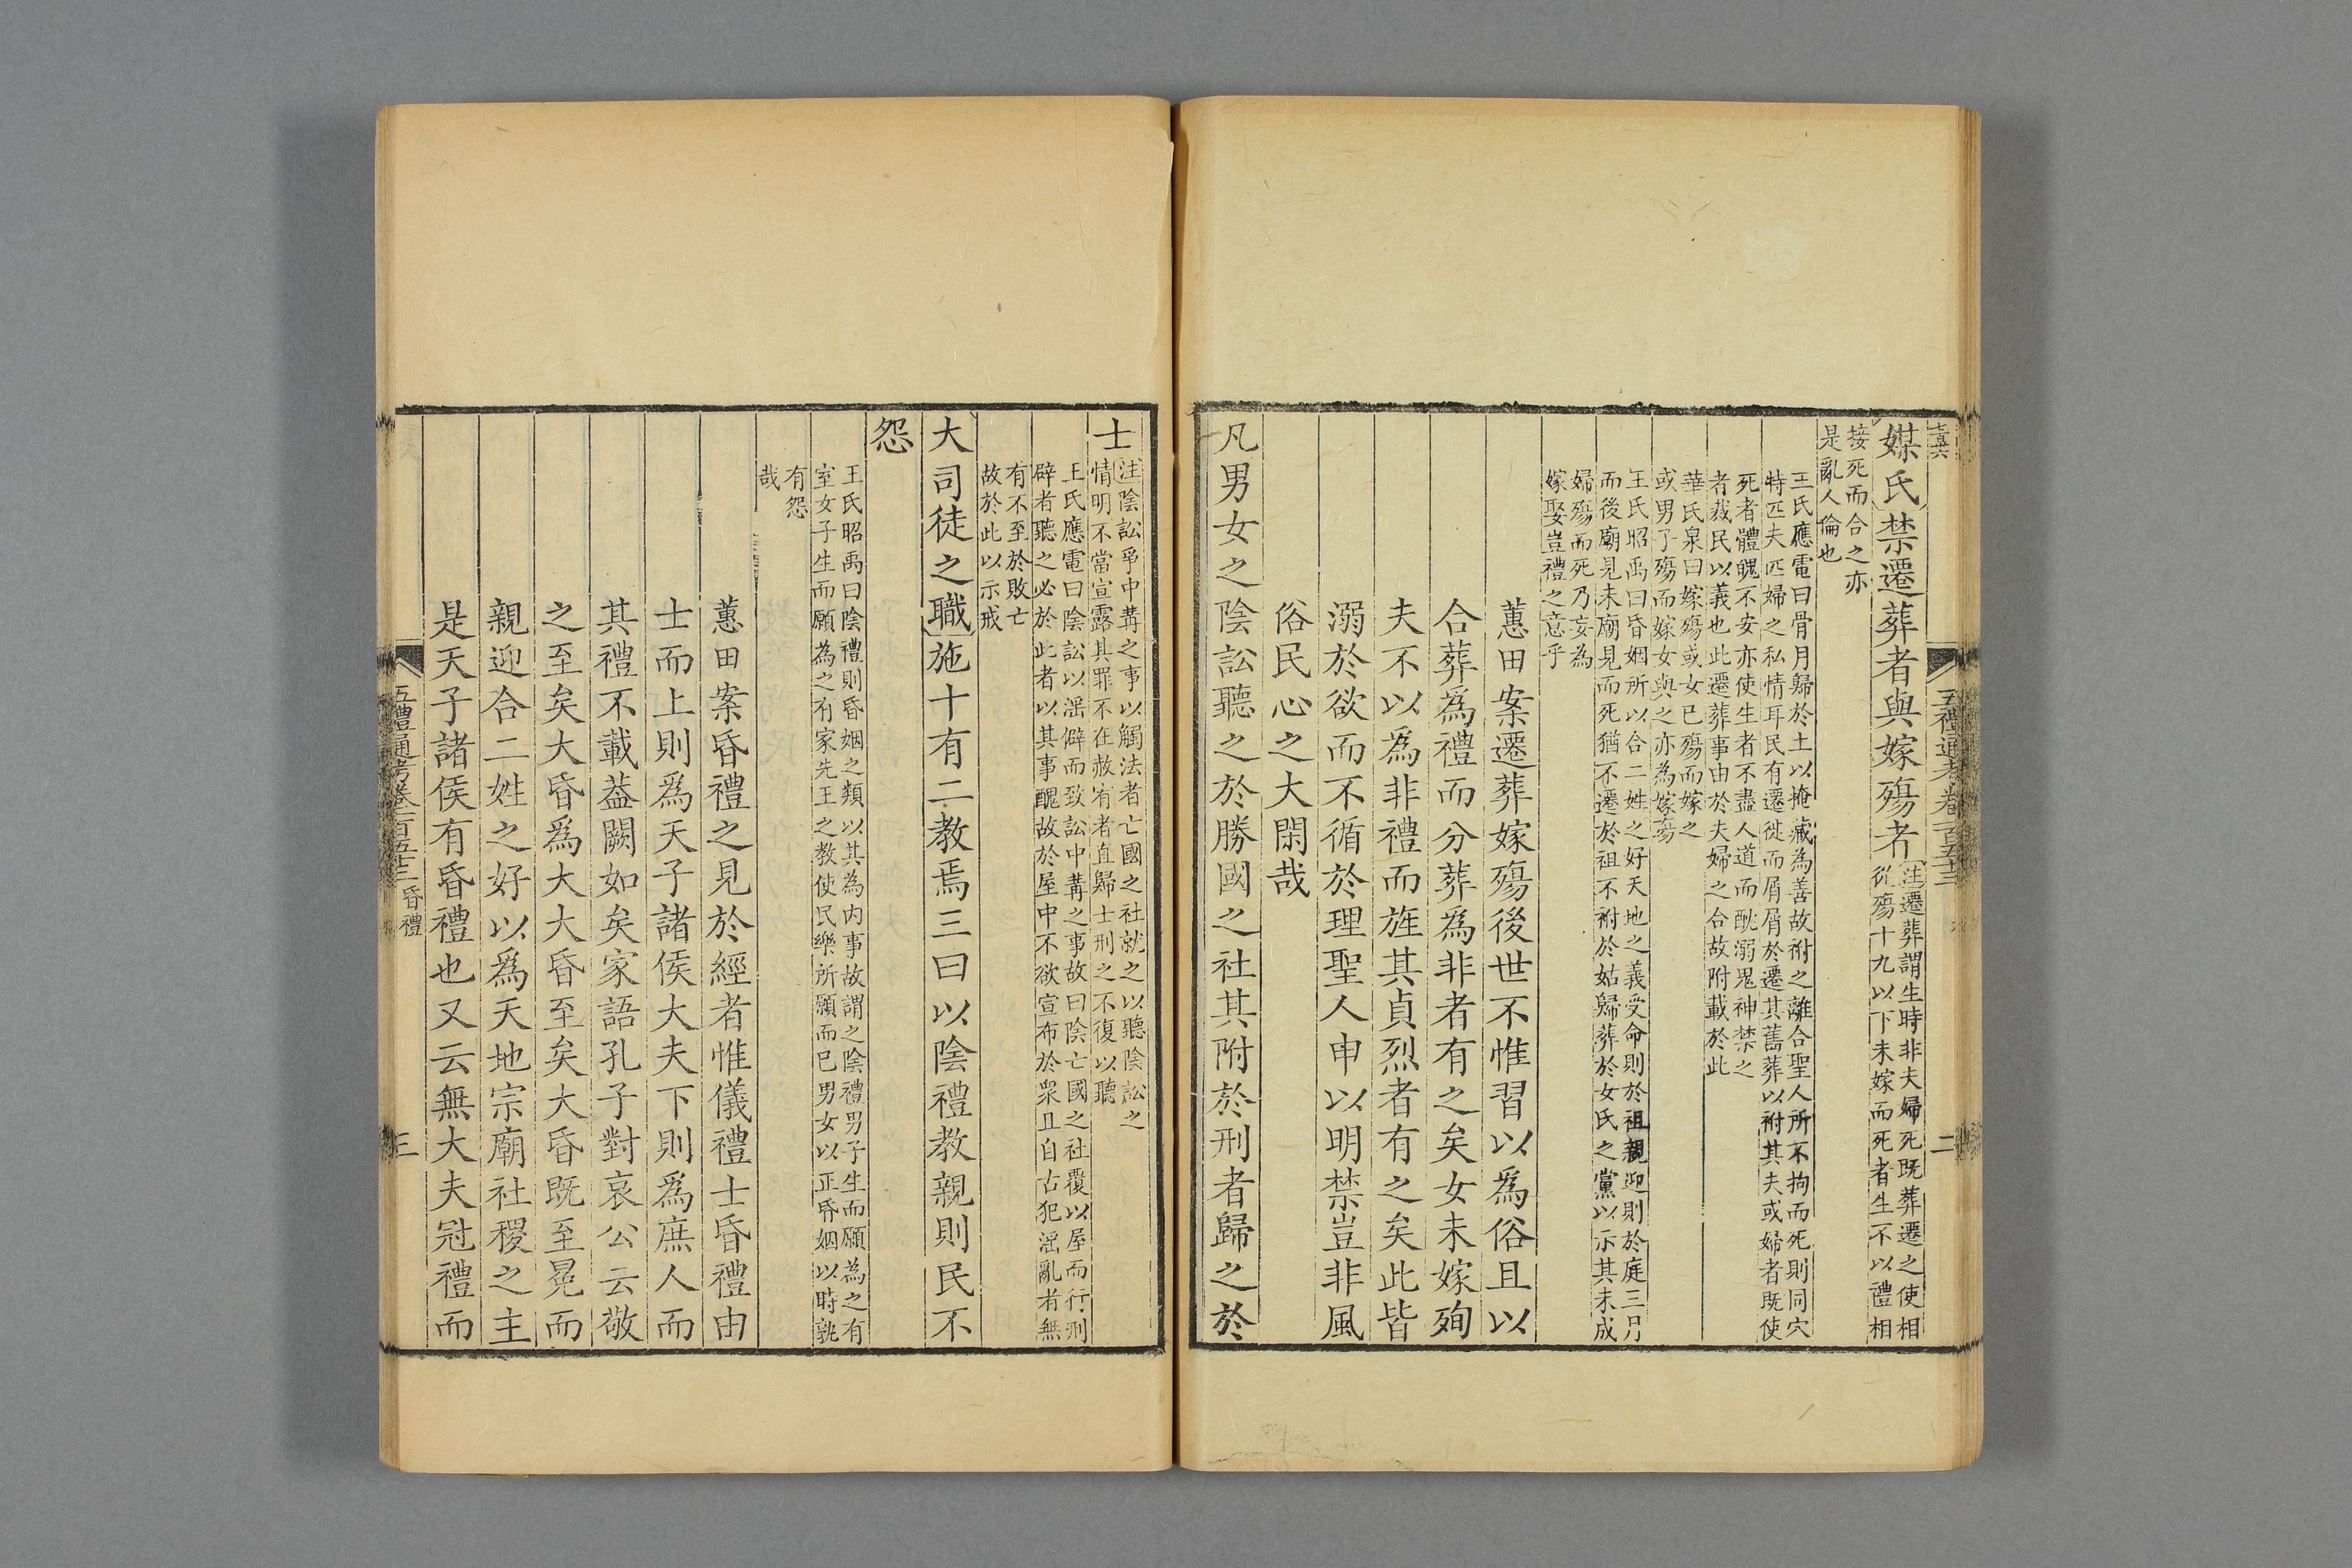 五禮通考卷一百五十二
二
媒氏禁遷葬者與嫁殤者
注遷葬謂生時非夫婦死既葬遷之使相
從殤十九以下未嫁而死者生不以禮相
接死而合之亦
是亂人倫也
王氏應電曰骨月歸於土以掩藏為善故祔之離合聖人所不拘而死則同穴
特匹夫匹婦之私情耳民有遷徙而屑屑於遷其舊葬以祔其夫或婦者既使
死者體魄不安亦使生者不盡人道而酖溺鬼神禁之
者裁民以義也此遷葬事由於夫婦之合故附載於此
華氏泉曰嫁殤或女已殤而嫁之
或男子殤而嫁女與之亦為嫁殤
王氏昭禹曰昏姻所以合二姓之好天地之義受命則於祖親迎則於庭三月
而後廟見未廟見而死猶不遷於祖不祔於姑歸葬於女氏之黨以示其未成
婦殤而死乃妄為
嫁娶豈禮之意乎
蕙田案遷葬嫁殤後世不惟習以為俗且以
合葬爲禮而分葬爲非者有之矣女未嫁殉
夫不以爲非禮而旌其貞烈者有之矣此皆
溺於欲而不循於理聖人申以明禁豈非風
俗民心之大閑哉
凡男女之陰訟聽之於勝國之社其附於刑者歸之於
士
注陰訟爭中冓之事以觸法者亡國之社就之以聽陰訟之
情明不當宣露其罪不在赦宥者直歸士刑之不復以聽
王氏應電曰陰訟以淫僻而致訟中冓之事故曰陰亡國之社覆以屋而行刑
辟者聽之必於此者以其事醜故於屋中不欲宣布於衆且自古犯淫亂者無
有不至於敗亡
故於此以示戒
大司徒之職施十有二教焉三曰以陰禮教親則民不
怨
王氏昭禹曰陰禮則昏姻之類以其為内事故謂之陰禮男子生而願為之有
室女子生而願為之有家先王之教使民樂所願而已男女以正昏姻以時孰
有怨
哉
蕙田案昏禮之見於經者惟儀禮士昏禮由
士而上則爲天子諸侯大夫下則爲庶人而
其禮不載葢闕如矣家語孔子對哀公云敬
之至矣大昏爲大大昏至矣大昏既至冕而
親迎合二姓之好以爲天地宗廟社稷之主
是天子諸侯有昏禮也又云無大夫冠禮而
五禮通考卷一百五十二 昏禮
三